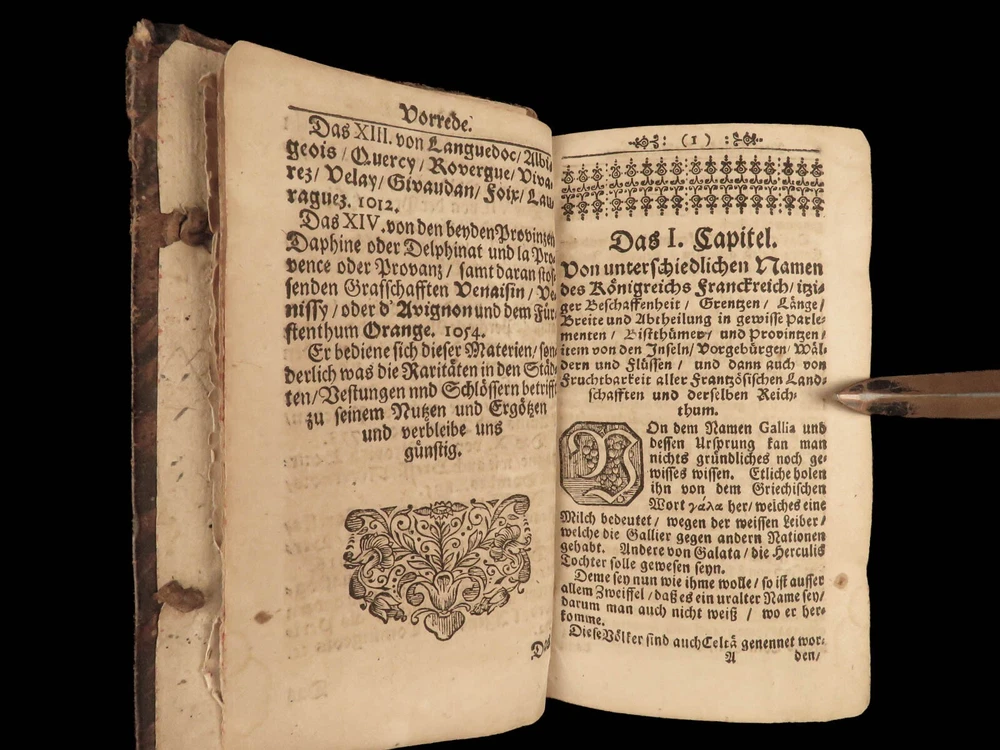 Vorrede.
Das XIII. von Languedoc/ Albi-
geois / Quercy/ Rovergue/ Viva-
rez/ Velay/ Givaudan/ Foix/ Lau
raguez. 1012.
Das XIV. von den beyden Provinzen
Daphine oder Delphinat und la Pro-
vence oder Provanz / samt daran stos-
senden Grafschafften Venaisin/ Ve-
nissy / oder d' Avignon und dem Für-
stenthum Orange. 1054.
Er bediene sich dieser Materien/ son-
derlich was die Raritäten in den Städ-
ten/ Vestungen nnd Schlössern betrifft
zu seinem Nutzen und Ergötzen
und verbleibe uns
günstig.
Das
(1)
Das I. Capitel.
Von unterschiedlichen Namen
des Königreichs Franckreich/ itzi-
ger Beschaffenheit / Grentzen / Länge/
Breite und Abtheilung in gewisse Parle-
menten / Bistthümer/ und Provintzen/
item von den Inseln/ Vorgebürgen/ Wäl-
dern und Flüssen / und dann auch von
Fruchtbarkeit aller Frantzösischen Land-
schafften und derselben Reich-
thum.
VOn dem Namen Gallia und
dessen Ursprung kan man
nichts gründliches noch ge-
wisses wissen. Etliche holen
ihn von dem Griechischen
Wort γάλα her/ welches eine
Milch bedeutet / wegen der weissen Leiber/
welche die Gallier gegen andern Nationen
gehabt. Andere von Galata / die Herculis
Tochter solle gewesen seyn.
Deme sey nun wie ihme wolle/ so ist ausser
allem Zweiffel / daß es ein uralter Name sey/
darum man auch nicht weiß / wo er her-
komme.
Diese Völker sind auch Celtä genennet wor-
A den/